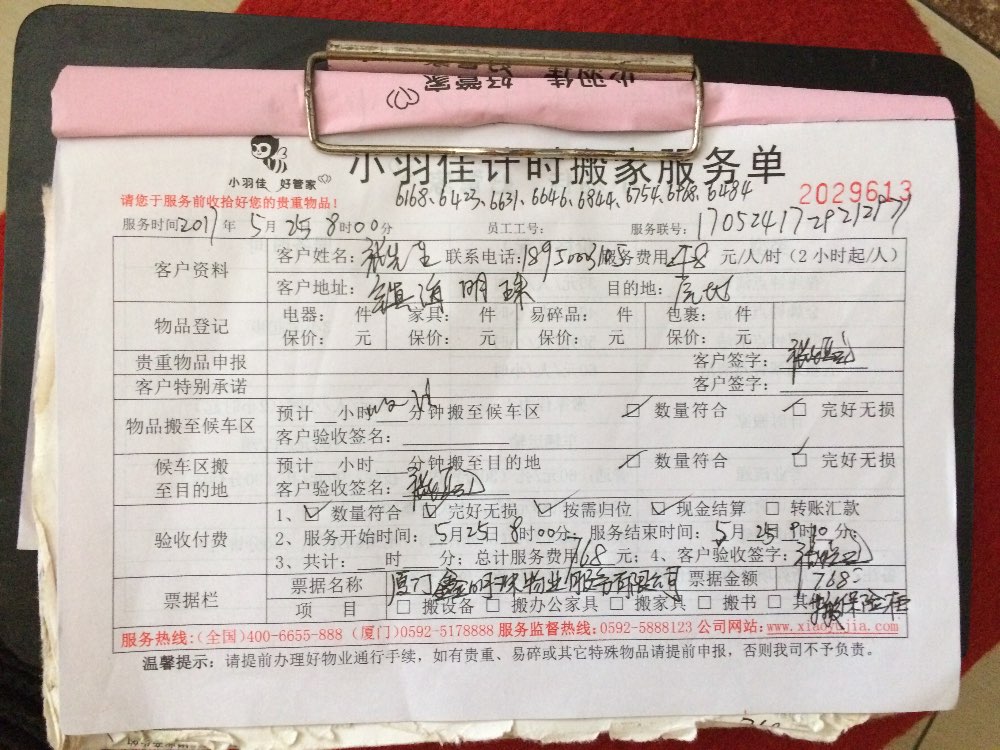 小羽佳 好管家
小羽佳 好管家
小羽佳计时搬家服务单
请您于服务前收拾好您的贵重物品!
6168、6423、6631、6646、6844、6754、6968、6484
2029613
服务时间2017年5月25 8时00分 员工工号: 服务联号:
客户资料 客户姓名:张先生 联系电话: 服务费用 元/人/时(2小时起/人)
客户地址:镇海明珠 目的地:
物品登记 电器: 件 家具: 件 易碎品: 件 包裹: 件
保价: 元 保价: 元 保价: 元 保价: 元
贵重物品申报 客户签字:
客户特别承诺 客户签字:
物品搬至候车区 预计 小时 分钟搬至候车区 数量符合 完好无损
客户验收签名:
候车区搬至目的地 预计 小时 分钟搬至目的地 数量符合 完好无损
客户验收签名:
验收付费 1、数量符合 完好无损 按需归位 现金结算 转账汇款
2、服务开始时间:5月25日8时00分 服务结束时间:5月25日9时10分
3、共计: 时 分;总计服务费用768元;4、客户验收签字:
票据栏 票据名称 厦门鑫明珠物业服务有限公司 票据金额 768
项 目 搬设备 搬办公家具 搬家具 搬书 其他搬保险柜
服务热线:(全国)400-6655-888 (厦门)0592-5178888 服务监督热线:0592-5888123 公司网站:www.xiaoyujia.com
温馨提示:请提前办理好物业通行手续,如有贵重、易碎或其它特殊物品请提前申报,否则我司不予负责。